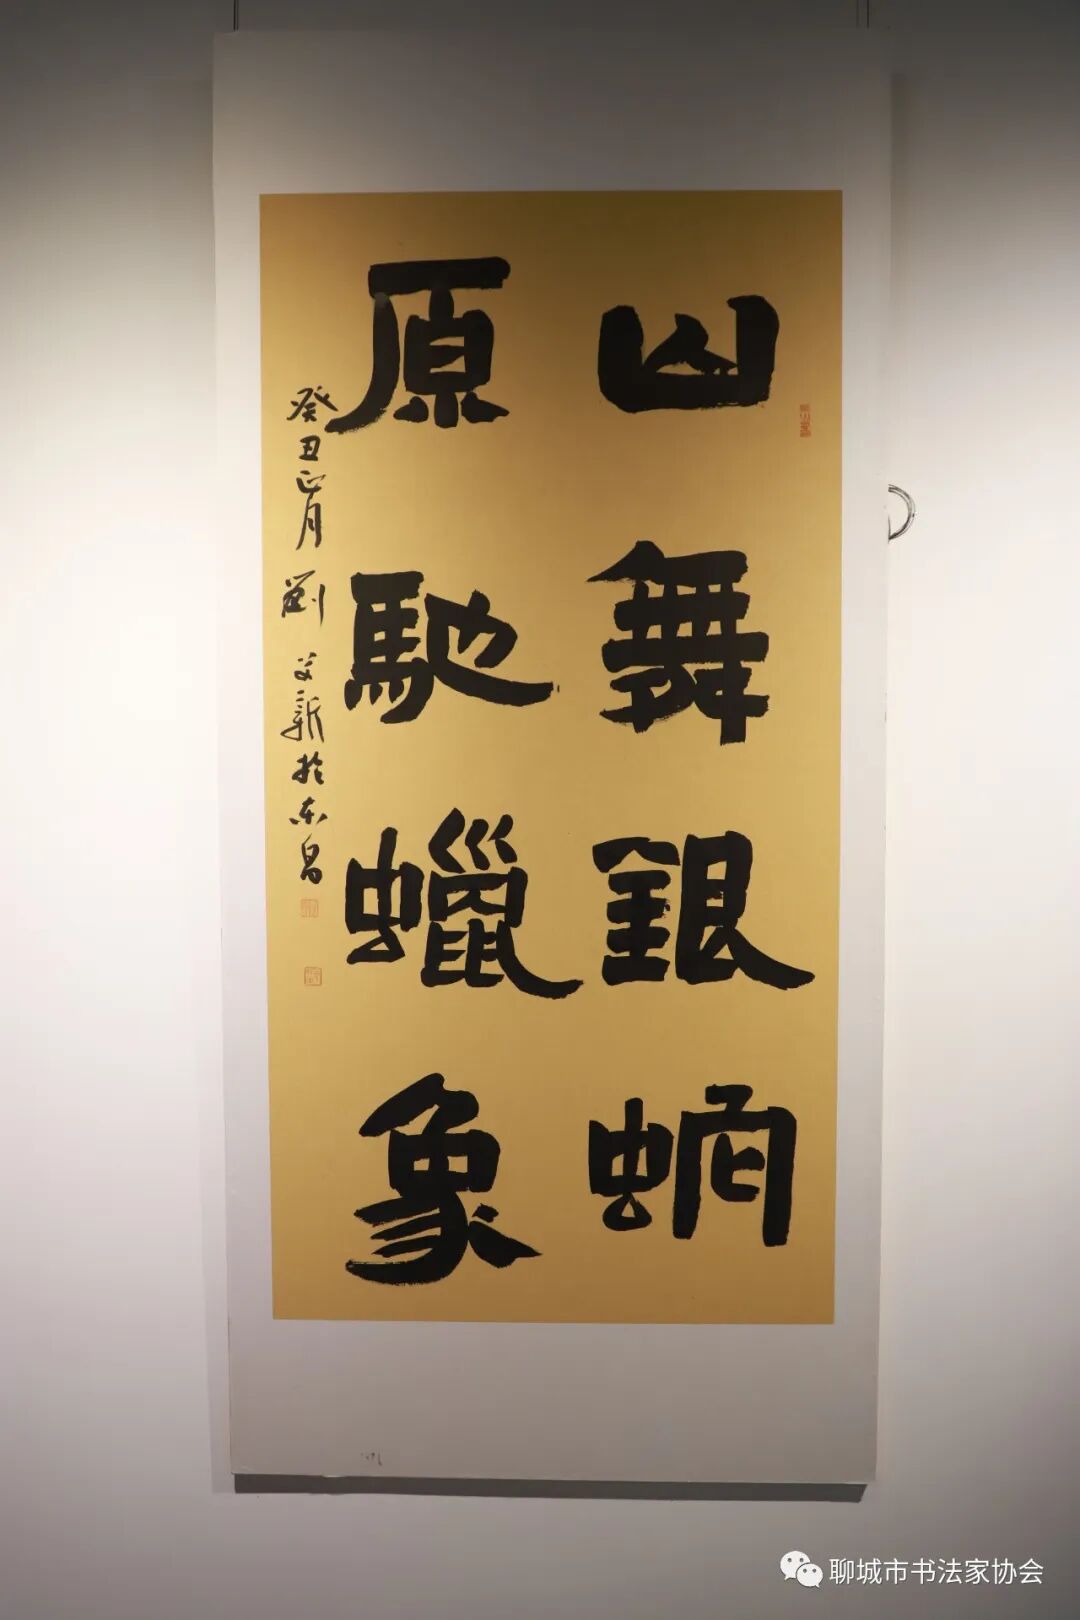 山舞銀蛇
原馳蠟象
癸丑正月 劉新於东昌
聊城市书法家协会